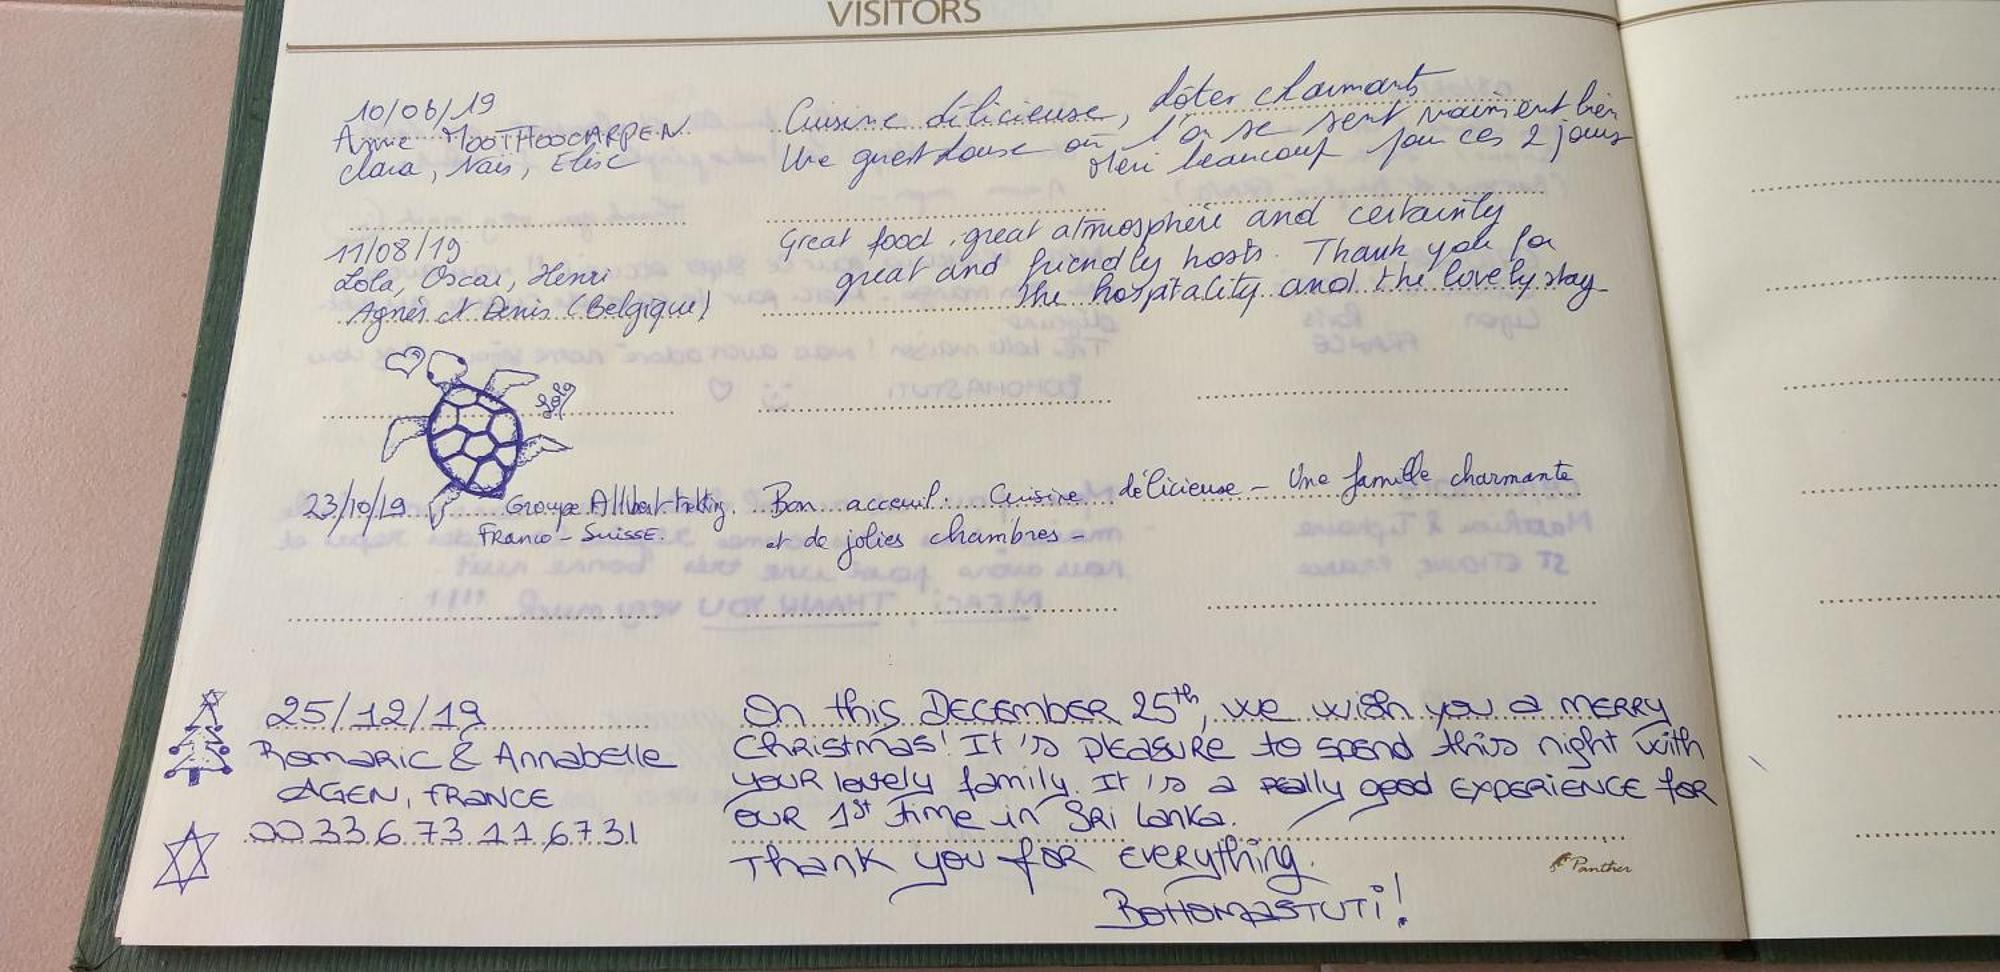 VISITORS
10/08/19
Annie MOOTHOOCARPEN
Clara, Naïs, Elise
Cuisine délicieuse, hôtes charmants
Une guesthouse où l'on se sent vraiment bien
Merci beaucoup pour ces 2 jours
11/08/19
Lola, Oscar, Henri
Agnès et Denis (Belgique)
Great food, great atmosphère and certainly
great and friendly hosts. Thank you for
the hospitality and the lovely stay
Lola
23/10/19 Groupe Allibert-trekking.
Franco-Suisse.
Bon acceuil. Cuisine délicieuse - Une famille charmante
et de jolies chambres -
25/12/19
Romaric & Annabelle
AGEN, FRANCE
00 33 6 73 11 67 31
On this DECEMBER 25th, we wish you a MERRY
Christmas! It's pleasure to spend this night with
your lovely family. It's a really good EXPERIENCE for
our 1st time in Sri Lanka.
Thank you for everything.
BOHOMASTUTI!
Panther